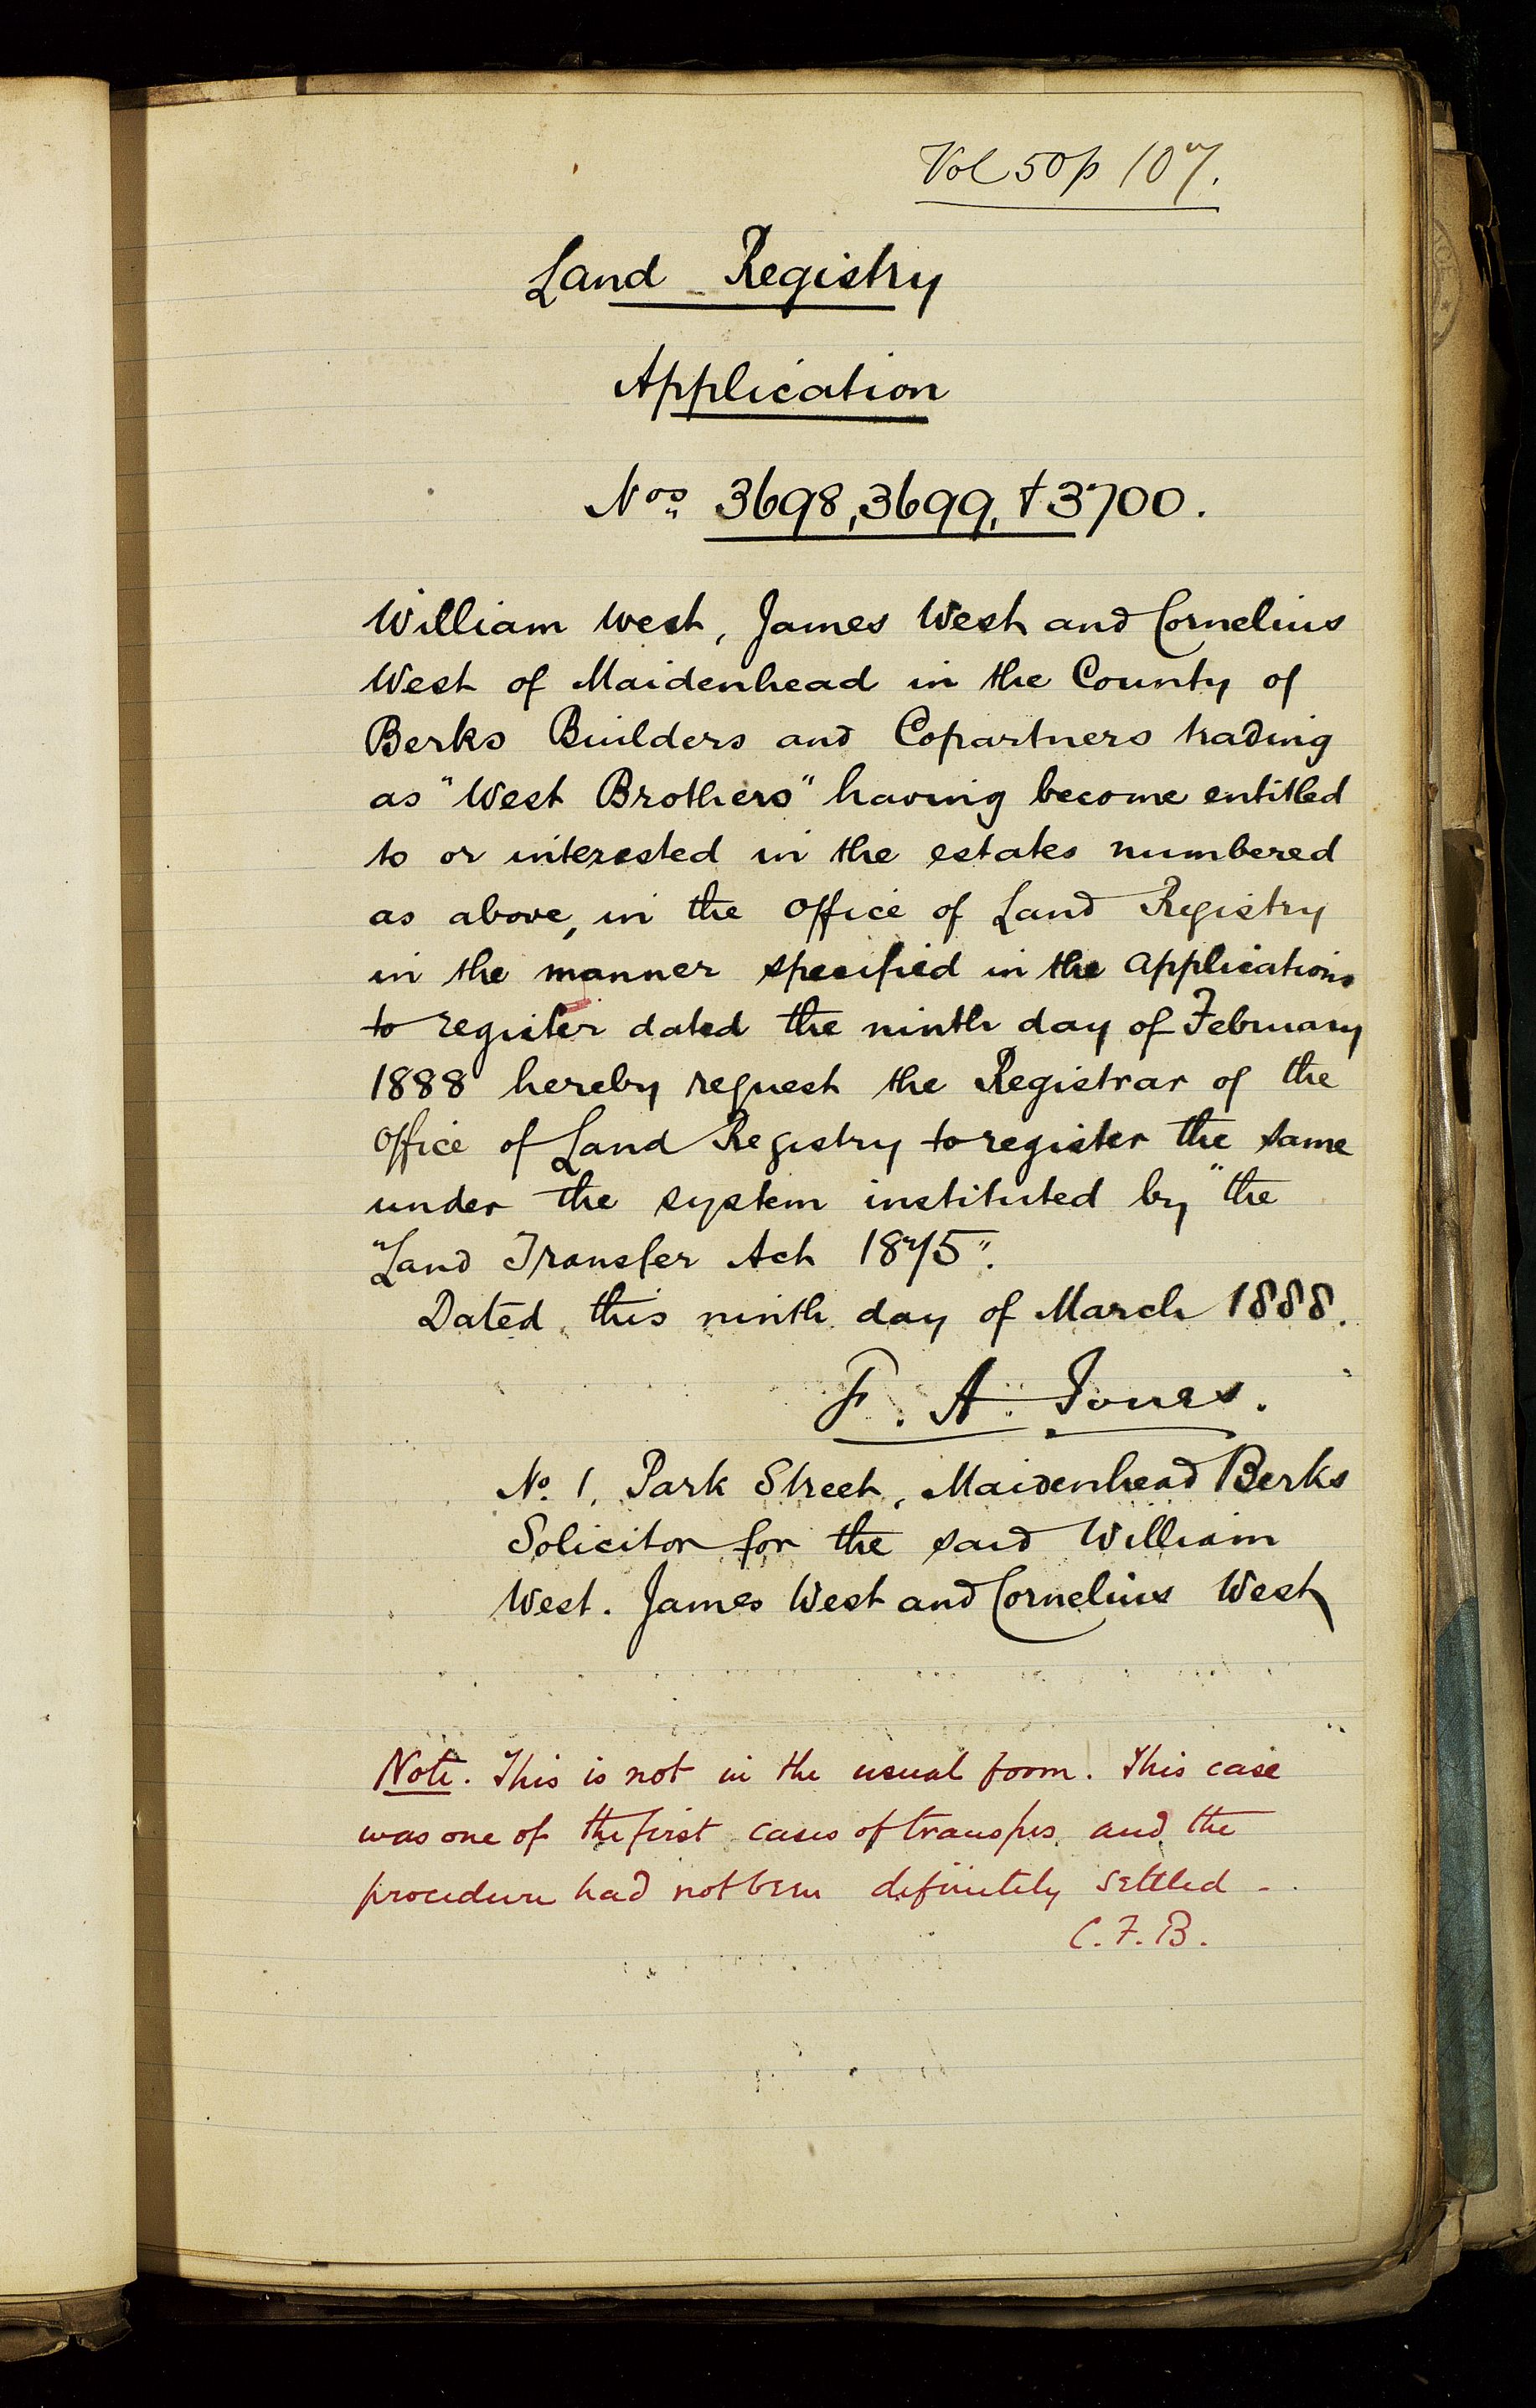 Vol 50 p 107.
Land Registry
Application
Nos 3698, 3699, & 3700.
William West, James West and Cornelius
West of Maidenhead in the County of
Berks Builders and Copartners trading
as "West Brothers" having become entitled
to or interested in the estates numbered
as above, in the Office of Land Registry
in the manner specified in the applications
to register dated the ninth day of February
1888 hereby request the Registrar of the
Office of Land Registry to register the same
under the system instituted by "the
"Land Transfer Act 1875".
Dated this ninth day of March 1888.
F. A. Jones.
No. 1, Park Street, Maidenhead Berks
Solicitor for the said William
West. James West and Cornelius West
Note. This is not in the usual form. This case
was one of the first cases of transfers and the
procedure had not been definitely settled -
C.F.B.